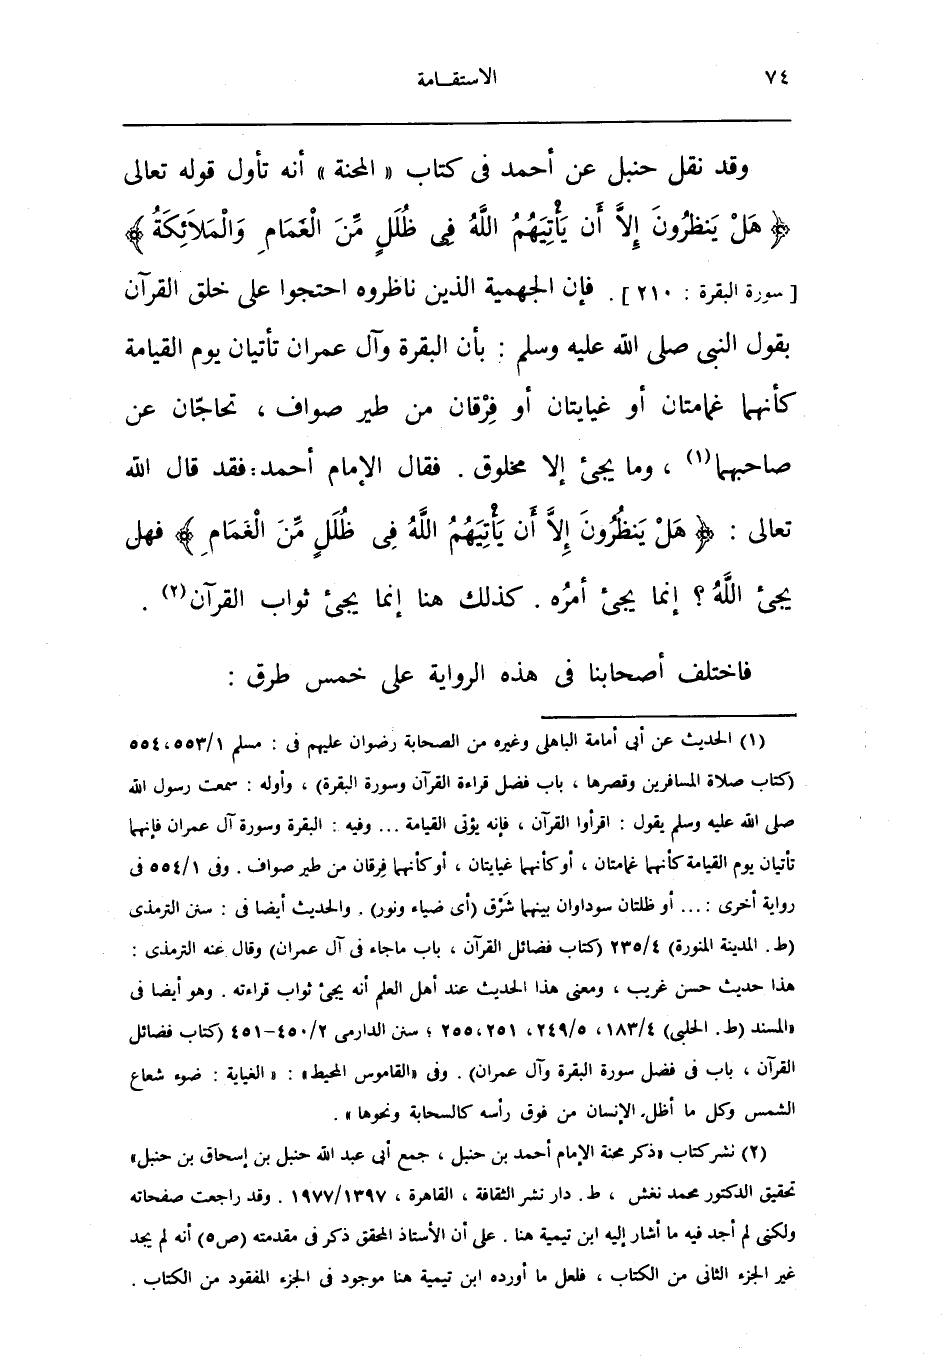 ٧٤
الاستقامة
وقد نقل حنبل عن أحمد فى كتاب « المحنة » أنه تأول قوله تعالى
﴿ هَلْ يَنظُرُونَ إِلاَّ أَن يَأْتِيَهُمُ اللَّهُ فِى ظُلَلٍ مِّنَ الْغَمَامِ وَالْمَلاَئِكَةُ ﴾
[ سورة البقرة : ٢١٠ ] . فإن الجهمية الذين ناظروه احتجوا على خلق القرآن
بقول النبى صلى الله عليه وسلم : بأن البقرة وآل عمران تأتيان يوم القيامة
كأنهما غمامتان أو غيايتان أو فِرْقان من طير صواف ، تحاجّان عن
صاحبهما(١) ، وما يجئ إلا مخلوق . فقال الإمام أحمد:فقد قال الله
تعالى : ﴿ هَلْ يَنظُرُونَ إِلاَّ أَن يَأْتِيَهُمُ اللَّهُ فِى ظُلَلٍ مِّنَ الْغَمَامِ ﴾ فهل
يجئ اللَّهُ ؟ إنما يجئ أمرُه . كذلك هنا إنما يجئ ثواب القرآن(٢) .
فاختلف أصحابنا فى هذه الرواية على خمس طرق :
(١) الحديث عن أبى أمامة الباهلى وغيره من الصحابة رضوان عليهم فى : مسلم ٥٥٣/١، ٥٥٤
(كتاب صلاة المسافرين وقصرها ، باب فضل قراءة القرآن وسورة البقرة) ، وأوله : سمعت رسول الله
صلى الله عليه وسلم يقول : اقرأوا القرآن ، فإنه يؤتى القيامة ... وفيه : البقرة وسورة آل عمران فإنهما
تأتيان يوم القيامة كأنهما غمامتان ، أو كأنهما غيايتان ، أو كأنهما فِرقان من طير صواف . وفى ٥٥٤/١ فى
رواية أخرى : ... أو ظلتان سوداوان بينهما شَرْق (أى ضياء ونور) . والحديث أيضا فى : سنن الترمذى
(ط. المدينة المنورة) ٢٣٥/٤ (كتاب فضائل القرآن ، باب ماجاء فى آل عمران) وقال عنه الترمذى :
هذا حديث حسن غريب ، ومعنى هذا الحديث عند أهل العلم أنه يجئ ثواب قراءته . وهو أيضا فى
«المسند (ط. الحلبي) ١٨٣/٤، ٢٤٩/٥، ٢٥١، ٢٥٥ ؛ سنن الدارمى ٤٥٠/٢-٤٥١ (كتاب فضائل
القرآن ، باب فى فضل سورة البقرة وآل عمران) . وفى «القاموس المحيط» : « الغياية : ضوء شعاع
الشمس وكل ما أظل الإنسان من فوق رأسه كالسحابة ونحوها » .
(٢) نشر كتاب «ذكر محنة الإمام أحمد بن حنبل ، جمع أبى عبد الله حنبل بن إسحاق بن حنبل»
تحقيق الدكتور محمد نغش ، ط. دار نشر الثقافة ، القاهرة ، ١٩٧٧/١٣٩٧ . وقد راجعت صفحاته
ولكنى لم أجد فيه ما أشار إليه ابن تيمية هنا . على أن الأستاذ المحقق ذكر فى مقدمته (ص٥) أنه لم يجد
غير الجزء الثانى من الكتاب ، فلعل ما أورده ابن تيمية هنا موجود فى الجزء المفقود من الكتاب .